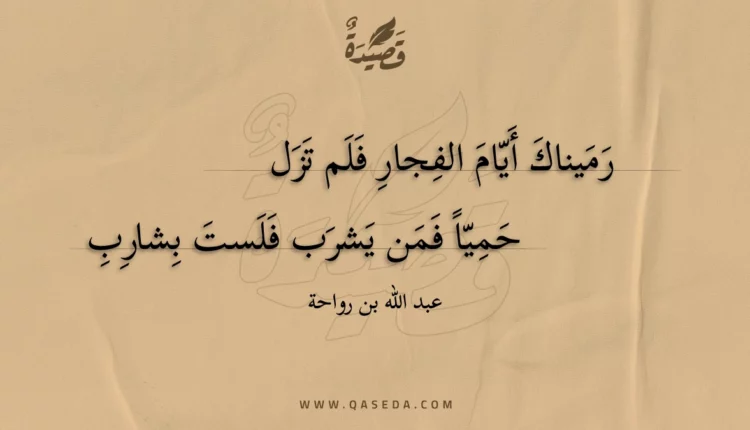 قَصِيدَةٌ
رَمَيناكَ أَيّامَ الفِجارِ فَلَم تَزَل
حَمِيّاً فَمَن يَشرَب فَلَستَ بِشارِبِ
عبد الله بن رواحة
WWW.QASEDA.COM